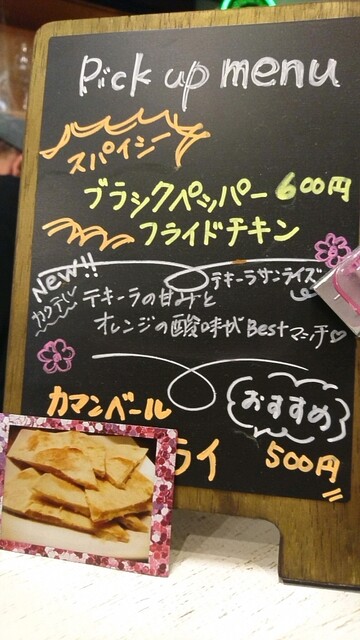 Pick up menu
スパイシー
ブラックペッパー 600円
フライドチキン
New!!
カクテル
テキーラサンライズ
テキーラの甘みと
オレンジの酸味がBestマッチ♡
おすすめ
カマンベール
ライ 500円